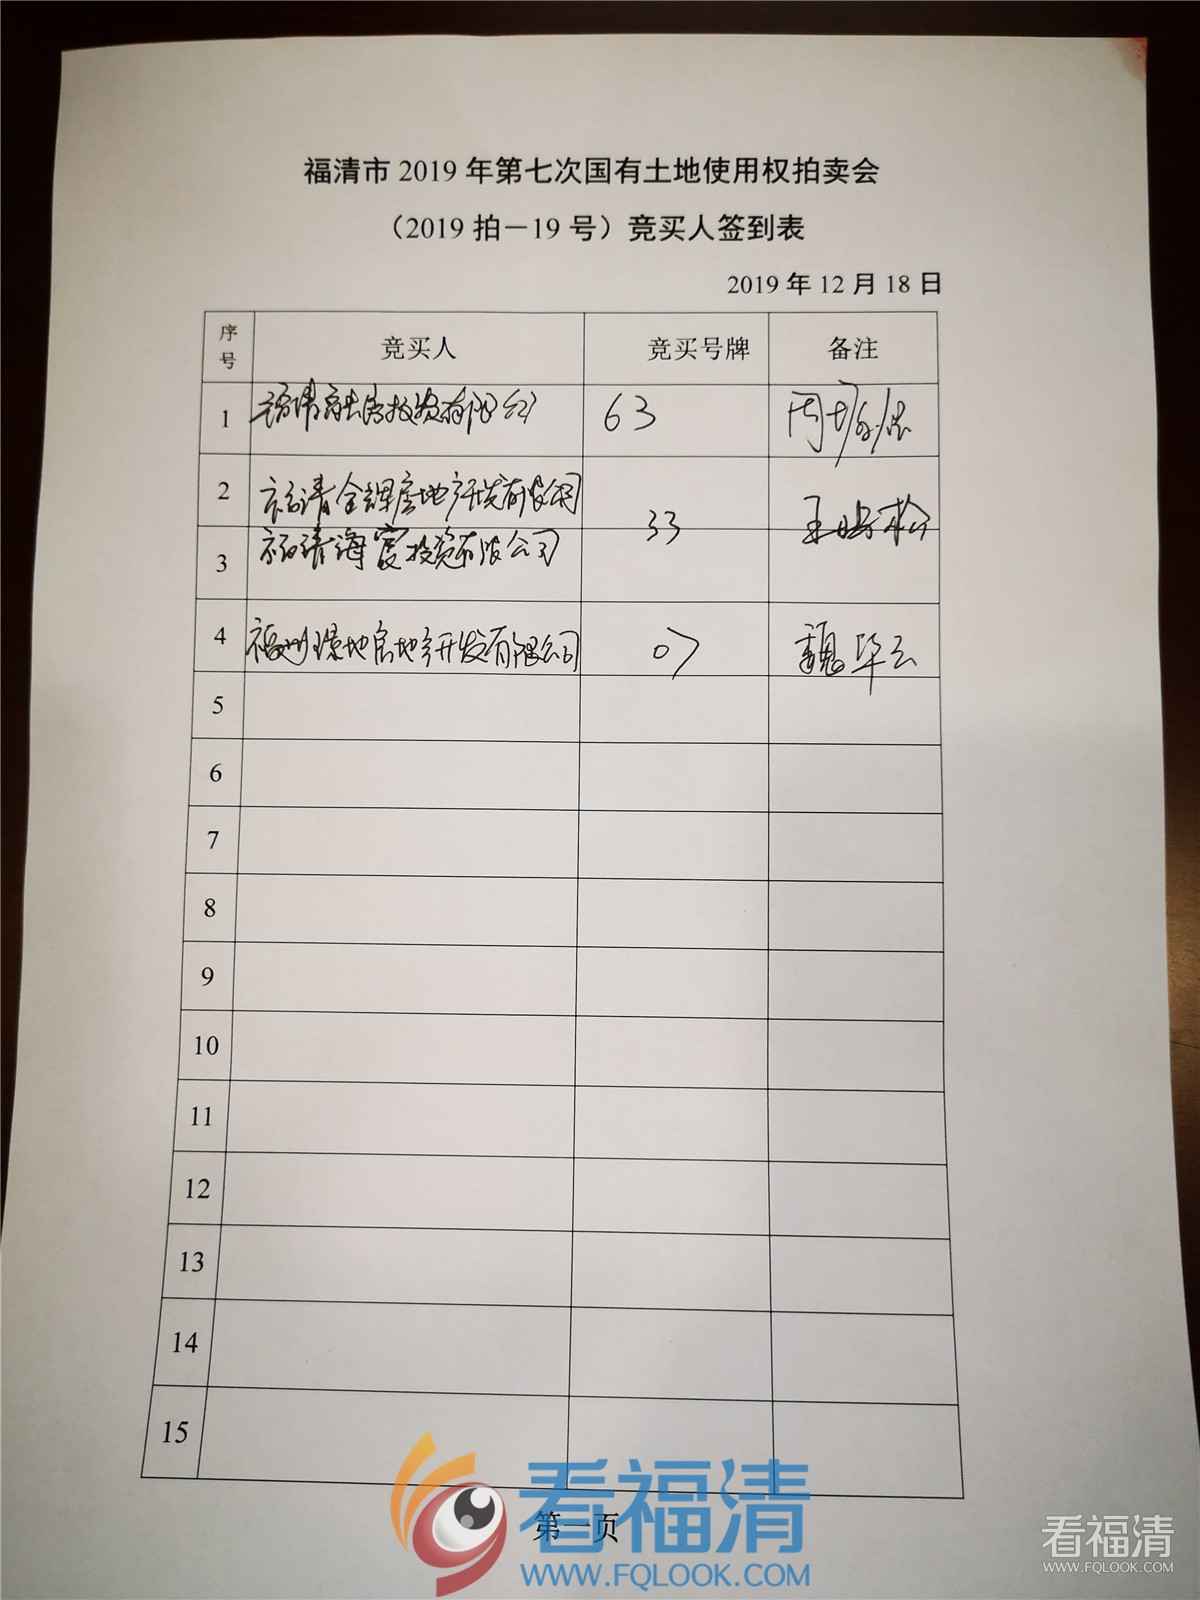 福清市2019年第七次国有土地使用权拍卖会
（2019拍－19号）竞买人签到表
2019年12月18日
序号 竞买人 竞买号牌 备注
1 投资有限公司 63 周
2 福清金辉房地产开发有限公司
33 王
3 福清海 投资有限公司
4 福州 地房地产开发有限公司 07 魏华云
5
6
7
8
9
10
11
12
13
14
15
第一页
看福清
WWW.FQLOOK.COM
看福清
WWW.FQLOOK.COM